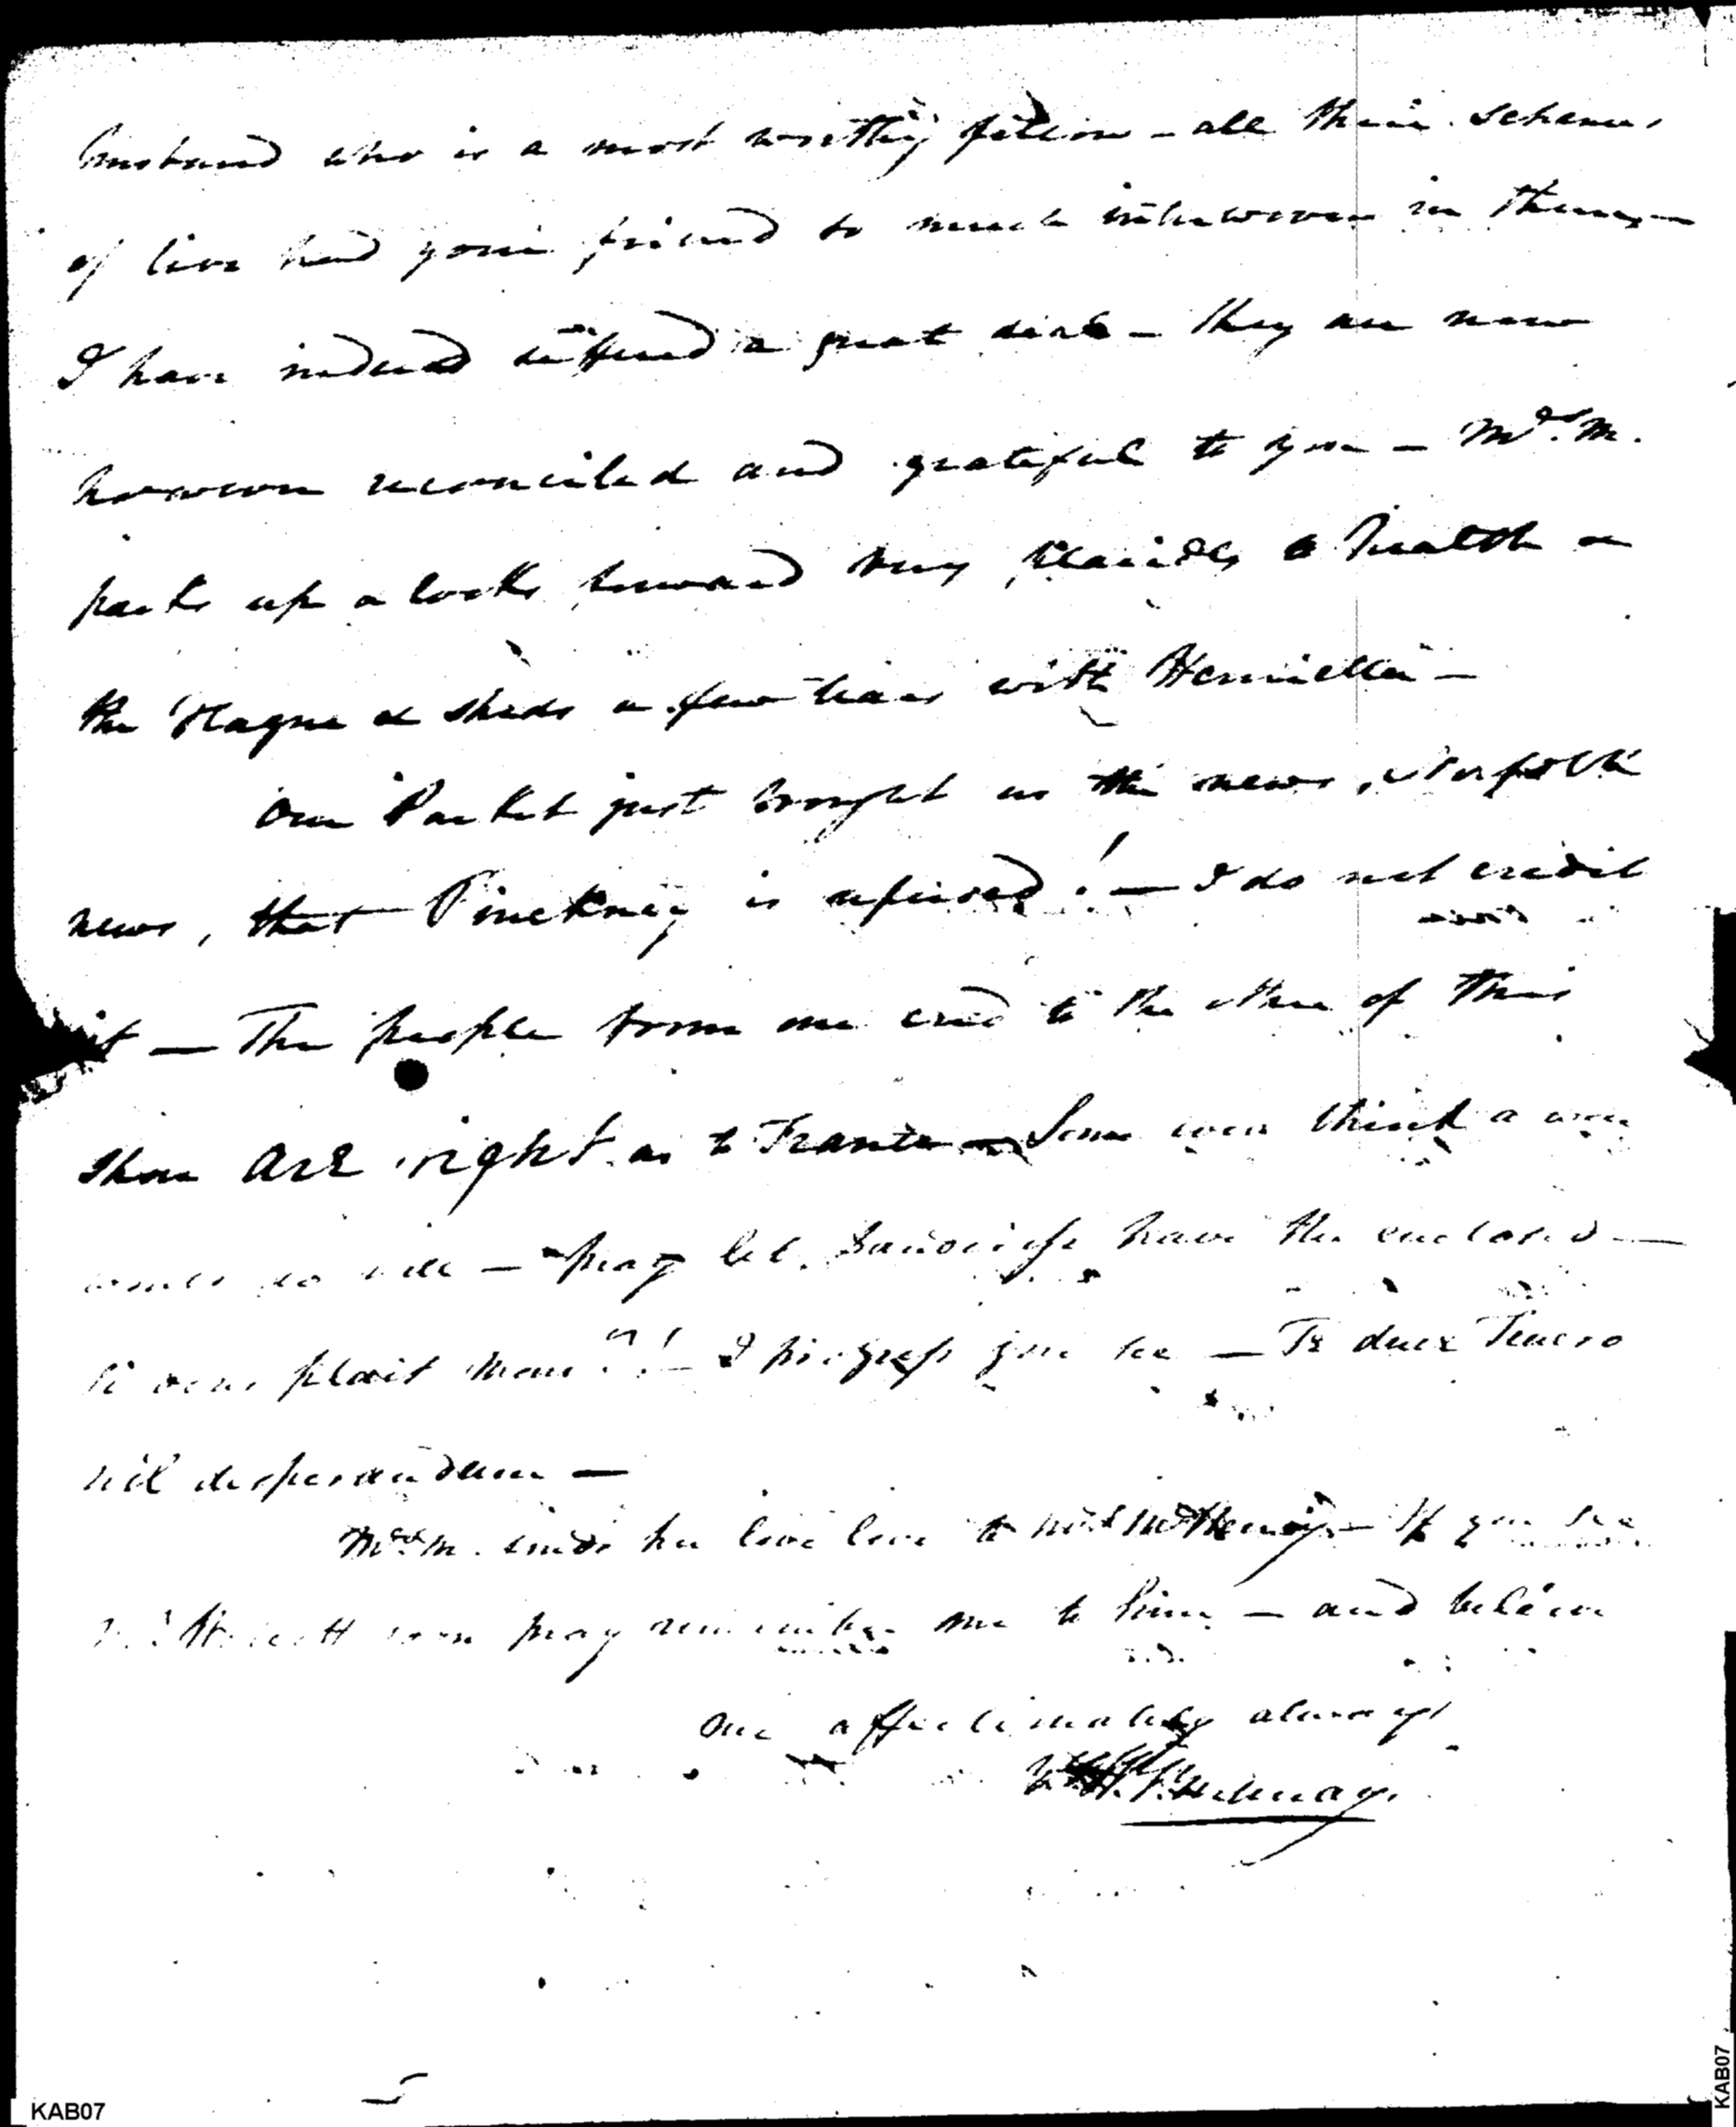 husband who is a most worthy fellow – all their schemes
of live had your friend so much interwoven in them, –
I have indeed suffered a great deal – they are now
however reconciled and grateful to you – Mrs. M.
packs up & looks forward very placidly to Health &
the Hague & sheds a few tears with Henrietta –
Our Packet just brought us the news, Norfolk
news, that Pinckney is refused! – I do not credit
it – The people from one end to the other of this
shore are right as to France – Some even think a war
would do well – pray let have the enclosed –
si vous plait Monsr.! – I progress you see – Te duce Teucro
nil desperandum –
Mrs. M. sends her love love to Mrs. McHenry – If you see
soon pray remember me to him – and believe
me affectionately always
W. V. Murray.
5
KAB07
KAB07